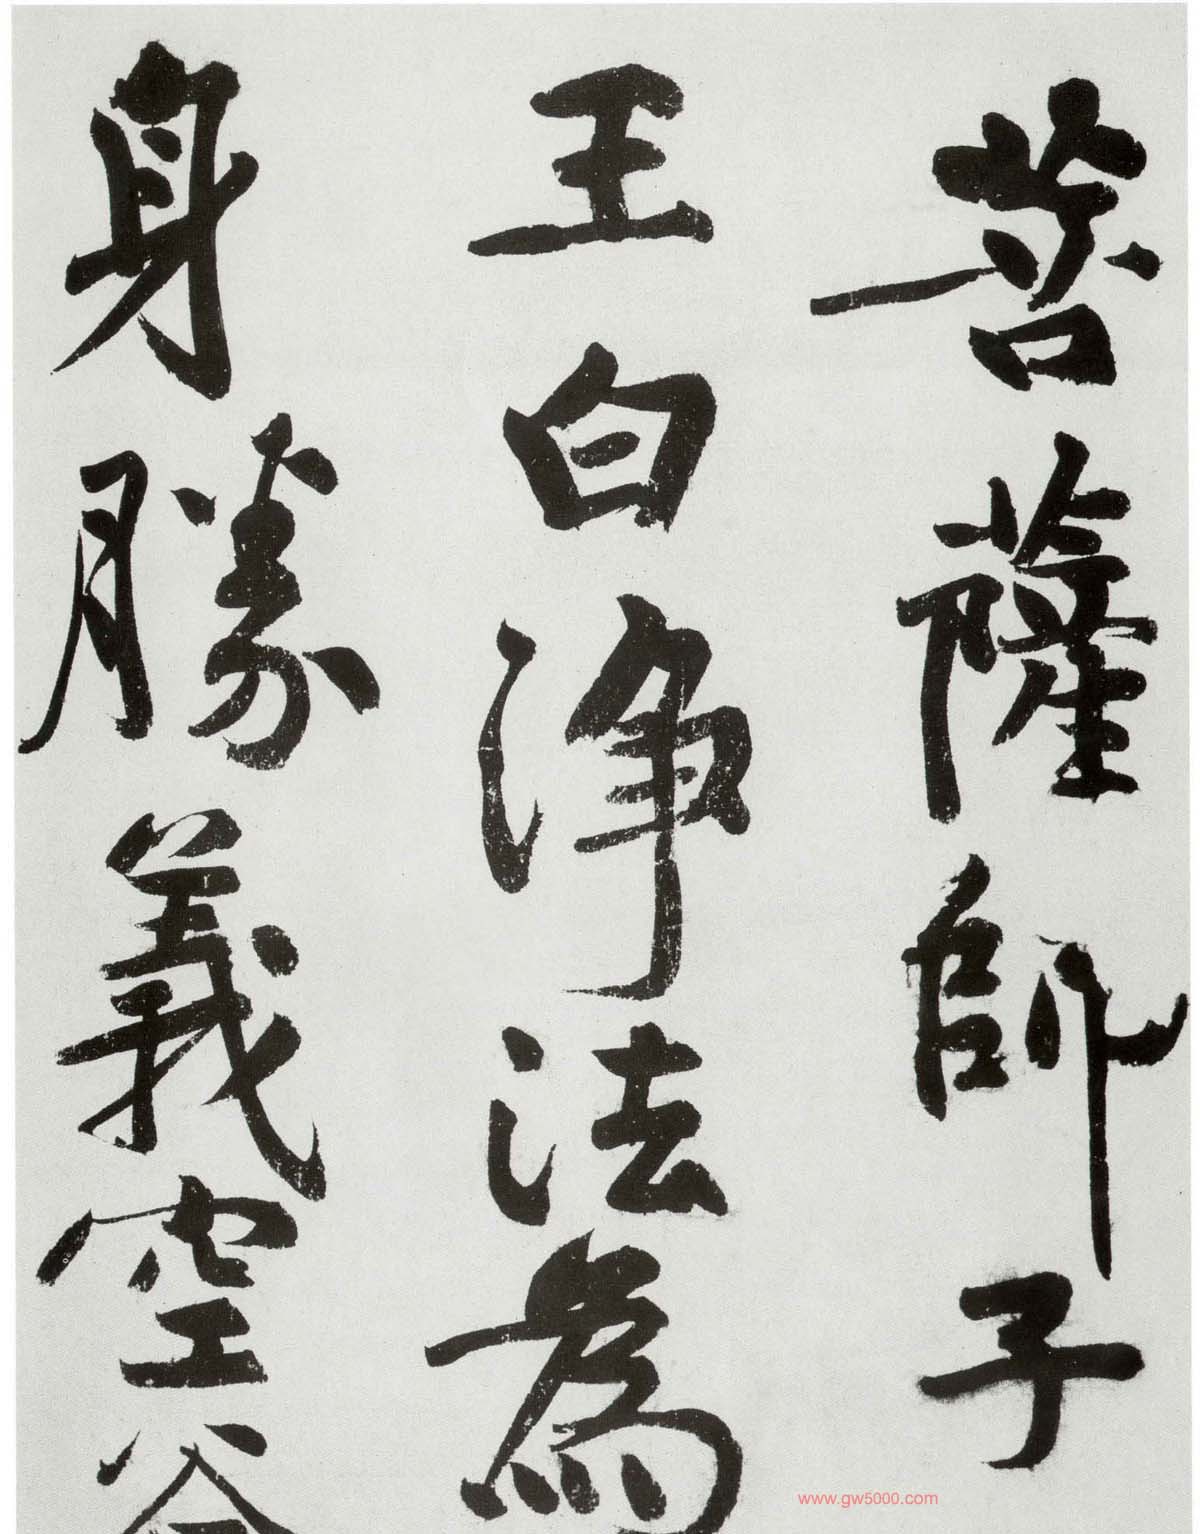 菩薩師子
王白净法為
身勝義空谷
www.gw5000.com